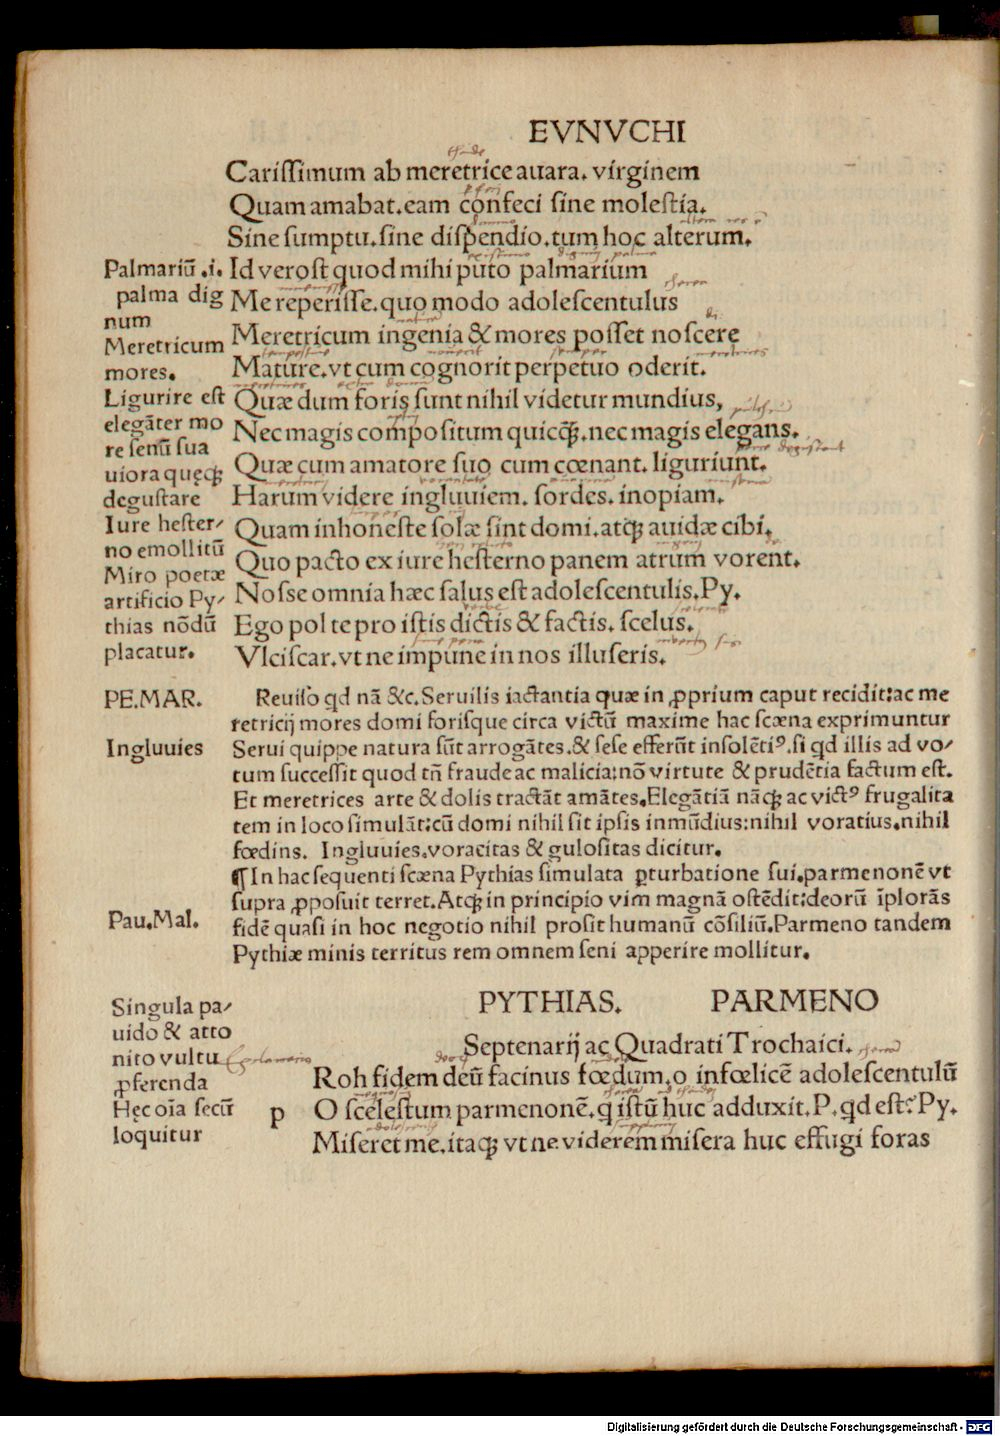 EVNVCHI
Cariſſimum ab meretrice auara. virginem
Quam amabat. eam confeci ſine moleſtia.
Sine ſumptu. ſine diſpendio. tum hoc alterum.
Id veroſt quod mihi puto palmarium
Me reperiſſe. quo modo adoleſcentulus
Meretricum ingenia & mores poſſet noſcere
Mature. vt cum cognorit perpetuo oderit.
Quæ dum foris ſunt nihil videtur mundius,
Nec magis compoſitum quicꝙ̃. nec magis elegans.
Quæ cum amatore ſuo cum cœnant. liguriunt.
Harum videre ingluuiem. ſordes. inopiam.
Quam inhoneſte ſolæ ſint domi. atqꝫ auidæ cibi.
Quo pacto ex iure heſterno panem atrum vorent.
Noſſe omnia hæc ſalus eſt adoleſcentulis. Py.
Ego pol te pro iſtis dictis & factis. ſcelus.
Vlciſcar. vt ne impune in nos illuſeris.
Palmariũ .i.
palma dig
num
Meretricum
mores.
Ligurire eſt
elegãter mo
re ſenũ ſua
uiora quęqꝫ
deguſtare
Iure heſter/
no emollitũ
Miro poetæ
artificio Py/
thias nõdũ
placatur.
PE.MAR.
Reuiſo qd nã &c. Seruilis iactantia quæ in ꝓprium caput recidit: ac me
retricij mores domi foriſque circa victũ maxime hac ſcæna exprimuntur
Ingluuies
Serui quippe natura ſũt arrogãtes. & ſeſe efferũt inſolẽtiꝰ. ſi qd illis ad vo/
tum ſucceſſit quod tñ fraude ac malicia: nõ virtute & prudẽtia factum eſt.
Et meretrices arte & dolis tractãt amãtes. Elegãtiã nãqꝫ ac victꝰ frugalita
tem in loco ſimulãt: cũ domi nihil ſit ipſis inmũdius: nihil voratius. nihil
fœdins. Ingluuies. voracitas & guloſitas dicitur.
¶ In hac ſequenti ſcæna Pythias ſimulata ꝑturbatione ſui. parmenonẽ vt
ſupra ꝓpoſuit terret. Atqꝫ in principio vim magnã oſtẽdit: deorũ ĩplorãs
Pau.Mal.
fidẽ quaſi in hoc negotio nihil proſit humanũ cõſiliũ. Parmeno tandem
Pythiæ minis territus rem omnem ſeni apperire mollitur.
PYTHIAS. PARMENO
Septenarij ac Quadrati Trochaici.
Singula pa/
uido & atto
nito vultu
ꝓferenda
Hęc oĩa ſecũ
loquitur
p
Roh fidem deũ facinus fœdum. o infœlicẽ adoleſcentulũ
O sceleſtum parmenonẽ. q̃ iſtũ huc adduxit. P. qd eſt? Py.
Miſeret me. itaqꝫ vt ne viderem miſera huc effugi foras
Digitalisierung gefördert durch die Deutsche Forschungsgemeinschaft - DFG